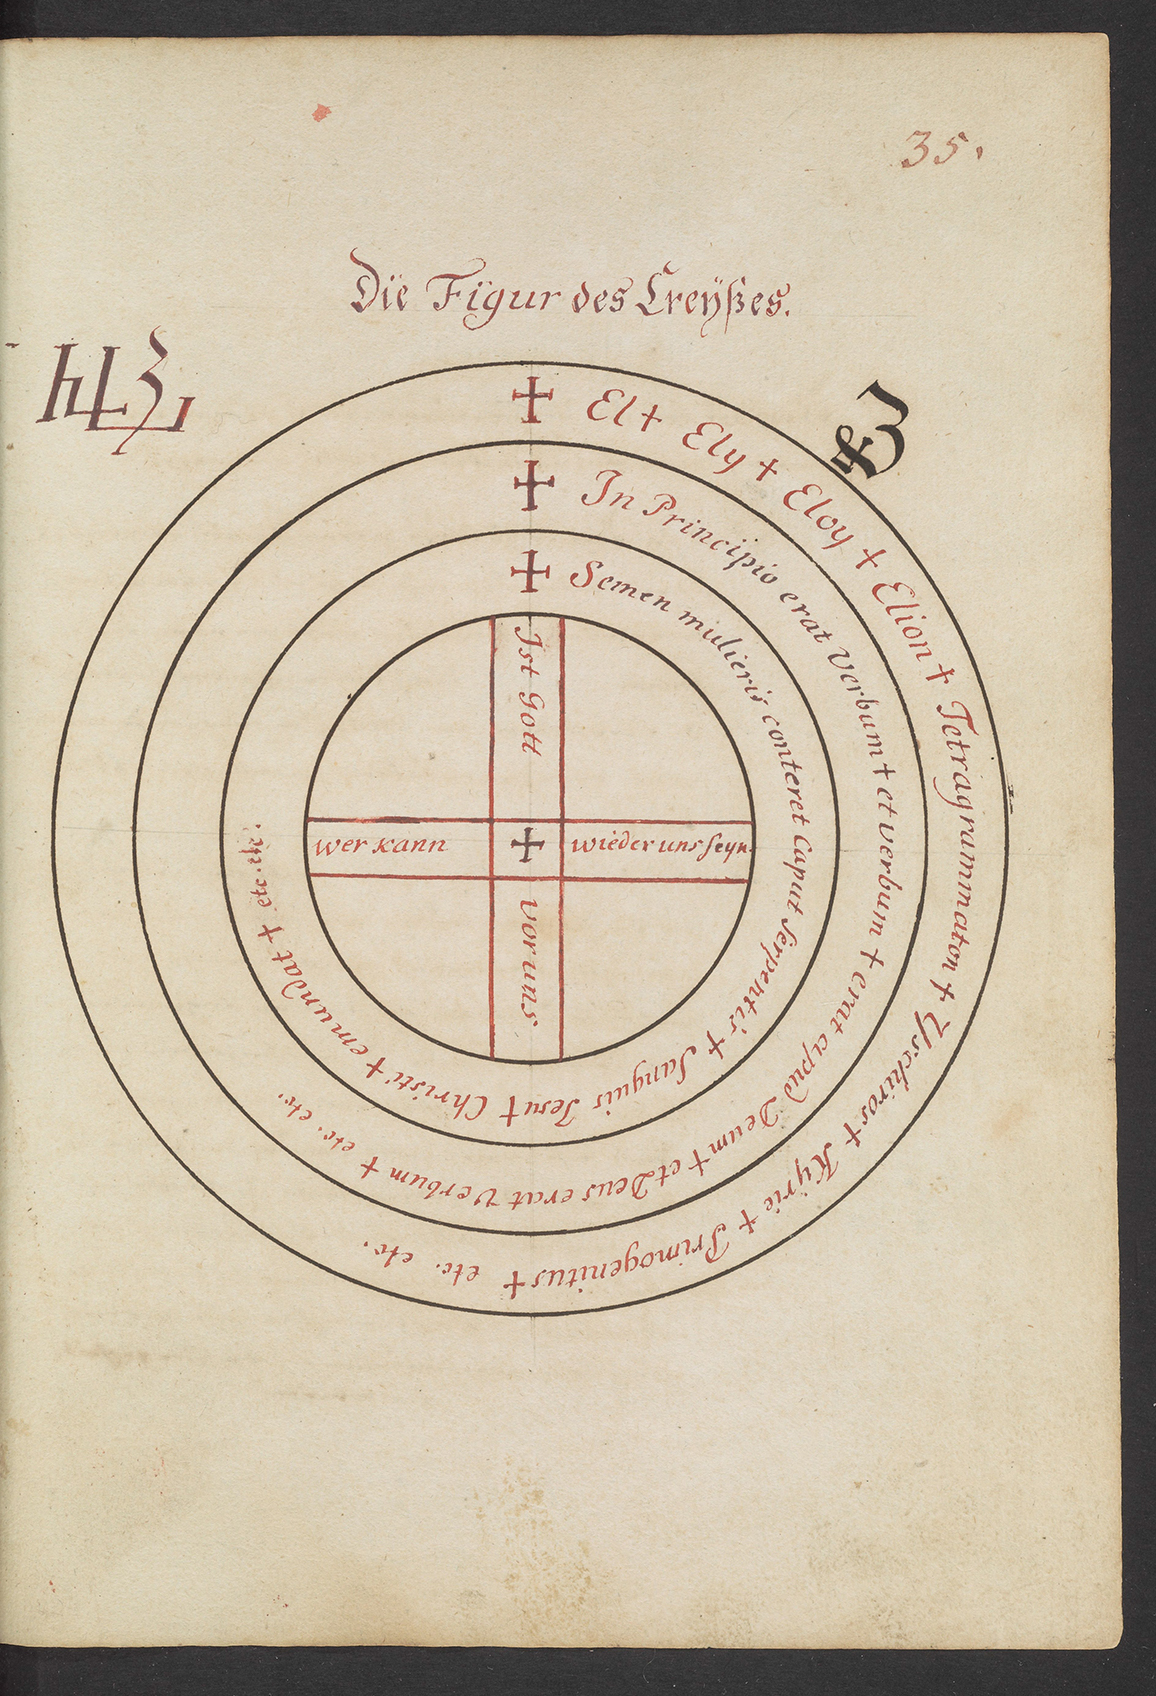 35.
Die Figur des Creÿßes.
+ El + Ely + Eloy + Elion + Tetragrammaton + Yschiros + Kyrie + Primogenitus + etc. etc.
+ In Principio erat Verbum + et verbum + erat apud Deum + et Deus erat Verbum + etc. etc.
+ Semen mulieris conteret Caput Serpentis + Sanguis Jesu + Christi + emundat + etc. etc.
Ist Gott
wer kann + wieder uns seyn.
vor uns